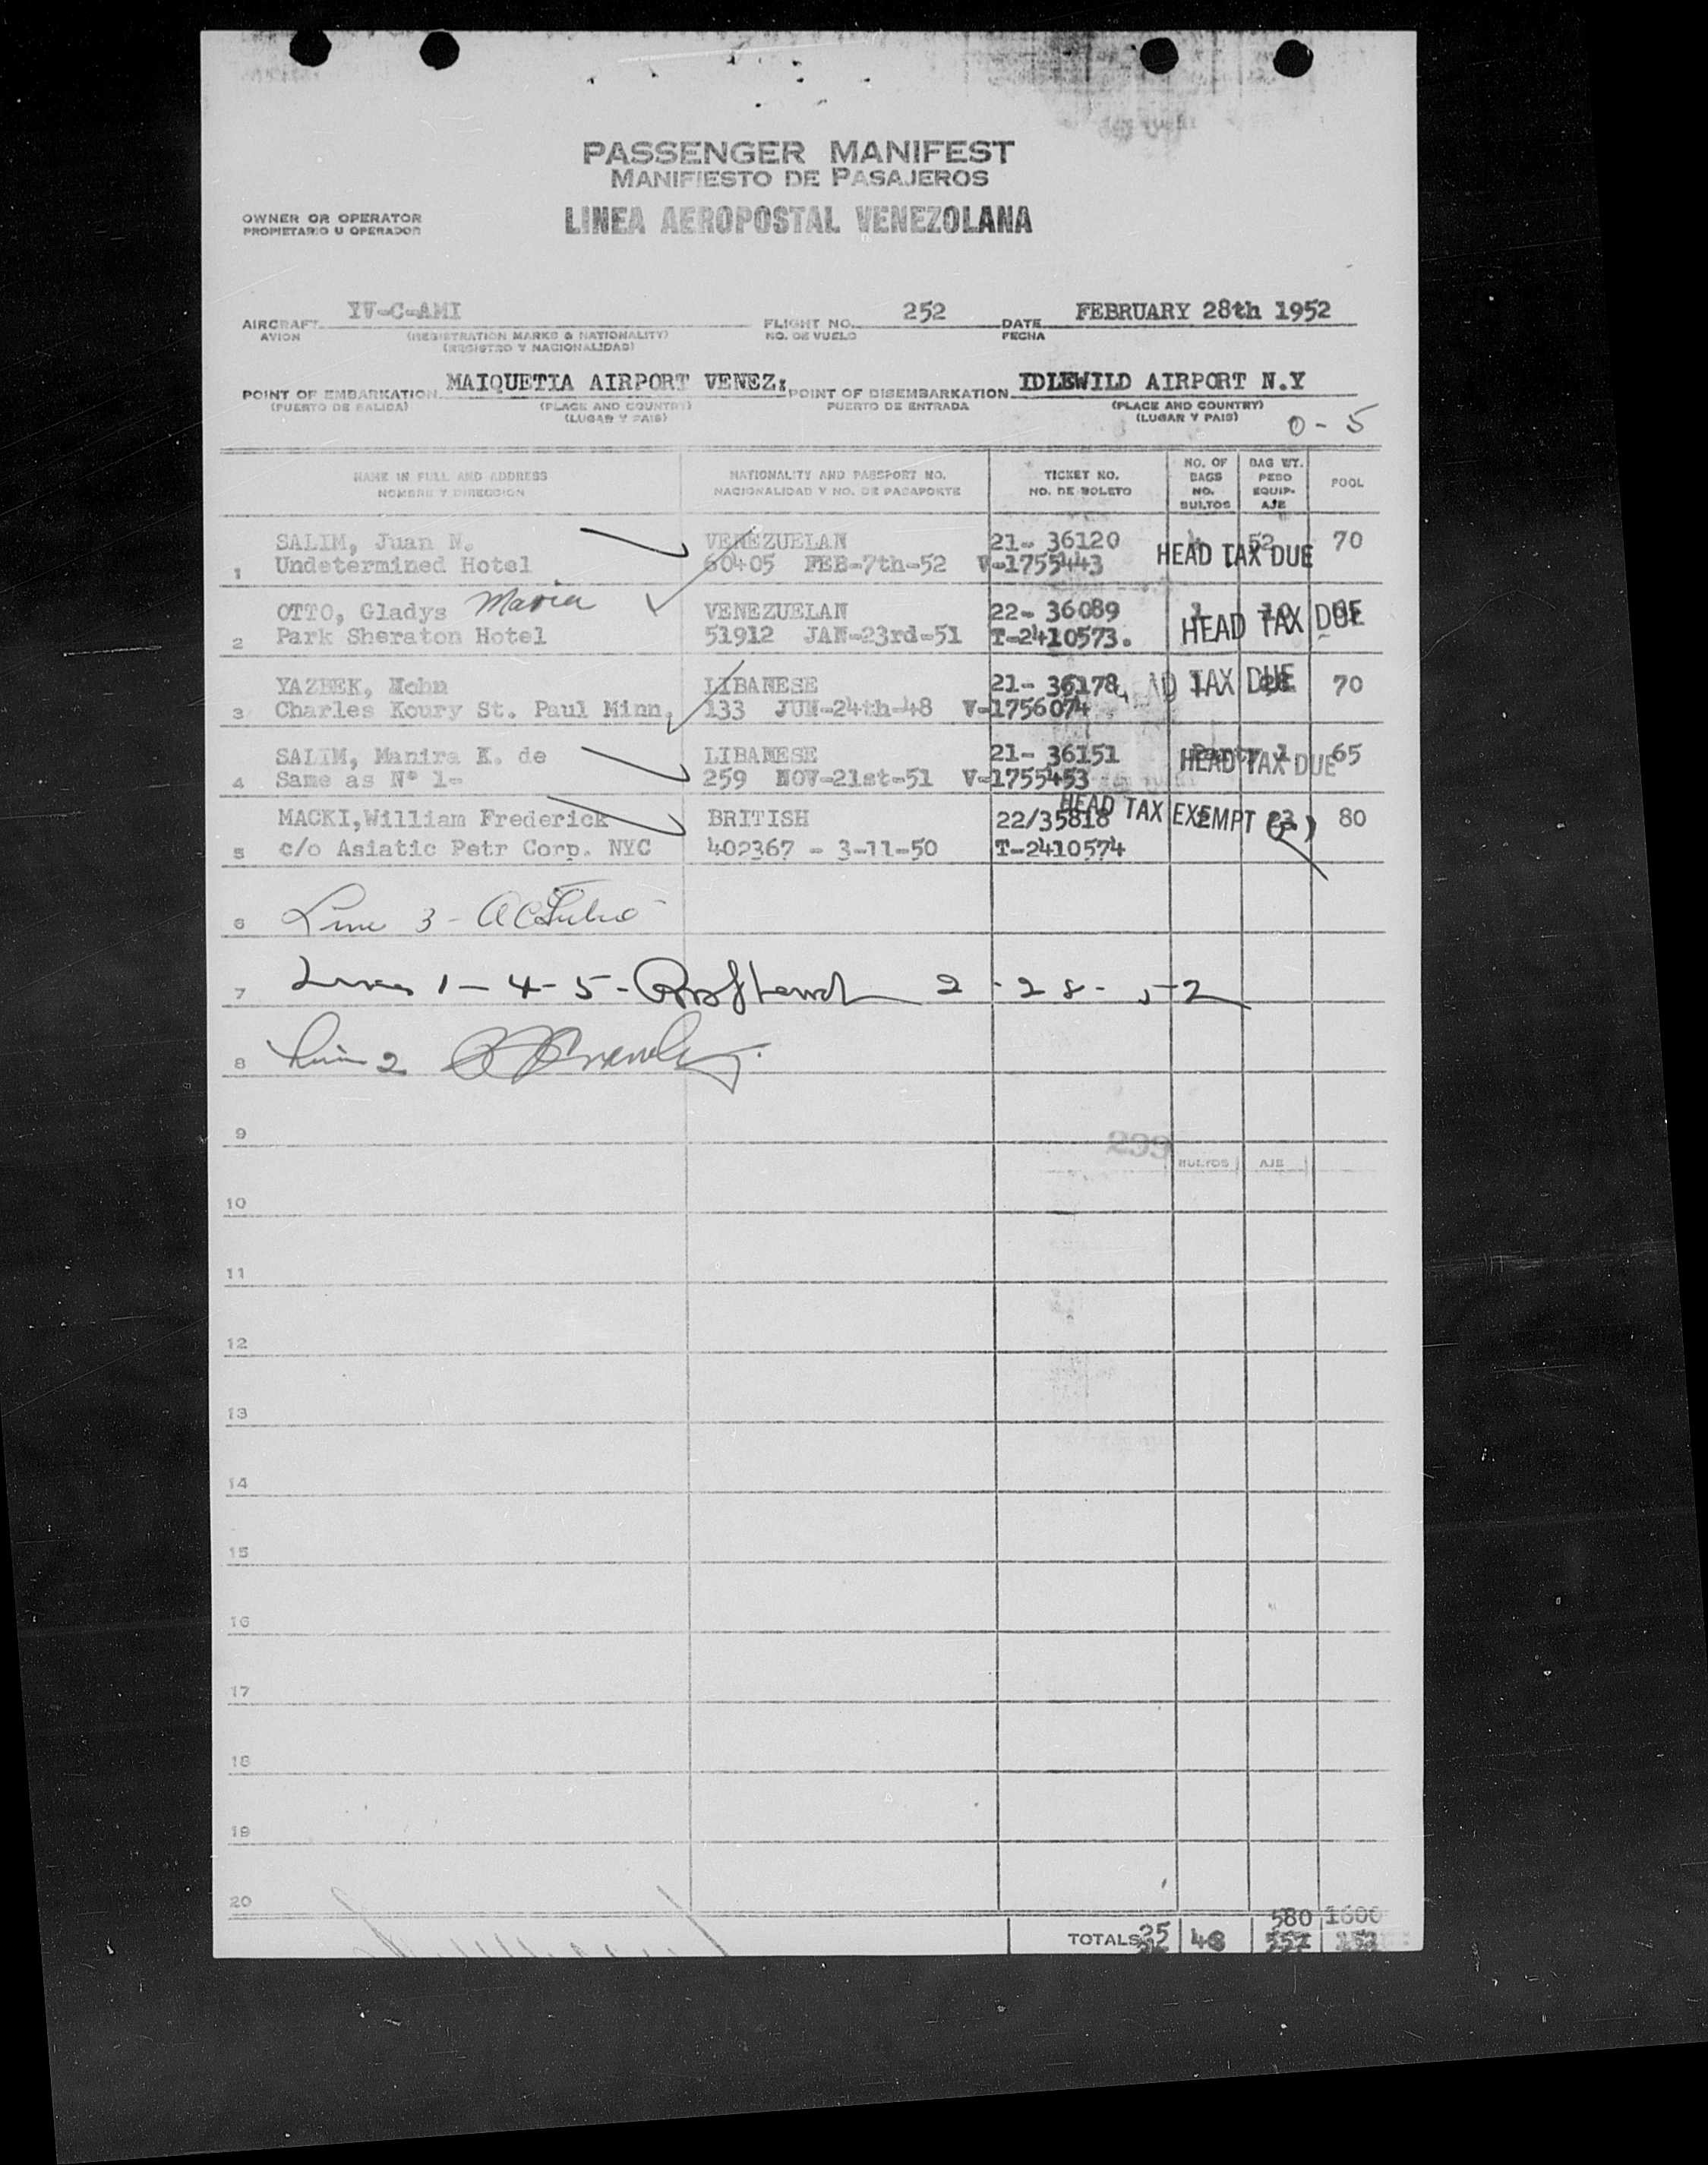 PASSENGER MANIFEST
MANIFIESTO DE PASAJEROS
OWNER OR OPERATOR
PROPIETARIO U OPERADOR
LINEA AEROPOSTAL VENEZOLANA
AIRCRAFT YV-C-AMI FLIGHT NO. 252 DATE FEBRUARY 28th 1952
AVION (REGISTRATION MARKS & NATIONALITY) NO. DE VUELO FECHA
(REGISTRO Y NACIONALIDAD)
POINT OF EMBARKATION MAIQUETIA AIRPORT VENEZ: POINT OF DISEMBARKATION IDLEWILD AIRPORT N.Y
(PUERTO DE SALIDA) (PLACE AND COUNTRY) PUERTO DE ENTRADA (PLACE AND COUNTRY)
(LUGAR Y PAIS) (LUGAR Y PAIS)
0-5
NAME IN FULL AND ADDRESS NATIONALITY AND PASSPORT NO. TICKET NO. NO. OF BAGS BAG WT. POOL
NOMBRE Y DIRECCION NACIONALIDAD Y NO. DE PASAPORTE NO. DE BOLETO NO. BULTOS PESO EQUIP-AJE
SALIM, Juan N. VENEZUELAN 21- 36120 52 70
1 Undetermined Hotel 60405 FEB-7th-52 V-1755443 HEAD TAX DUE
OTTO, Gladys Maria VENEZUELAN 22- 36089
2 Park Sheraton Hotel 51912 JAN-23rd-51 T-2410573. HEAD TAX DUE
YAZBEK, Nohn LIBANESE 21- 36178 TAX DUE 70
3 Charles Koury St. Paul Minn, 133 JUN-24th-48 V-1756074
SALIM, Manira K. de LIBANESE 21- 36151 HEAD TAX DUE 65
4 Same as Nº 1- 259 NOV-21st-51 V-1755453
MACKI,William Frederick BRITISH 22/35818 HEAD TAX EXEMPT 23 80
5 c/o Asiatic Petr Corp. NYC 402367 - 3-11-50 T-2410574
6 Line 3 -
7 Lines 1-4-5- 2-28-52
8 Line 2
9
299
BULTOS AJE
10
11
12
13
14
15
16
17
18
19
20
580 1600
TOTALS 25 48